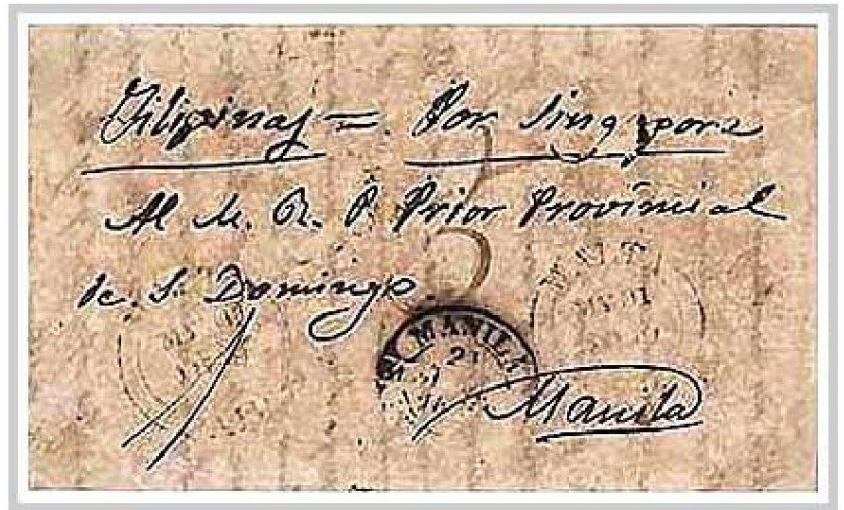 Filipinas = Por Singapore
Al M. R. P. Prior Provincial
de S. Domingo
MANILA
Manila